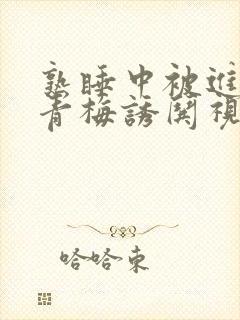 熟睡中被進
青梅誘関視
哈哈東